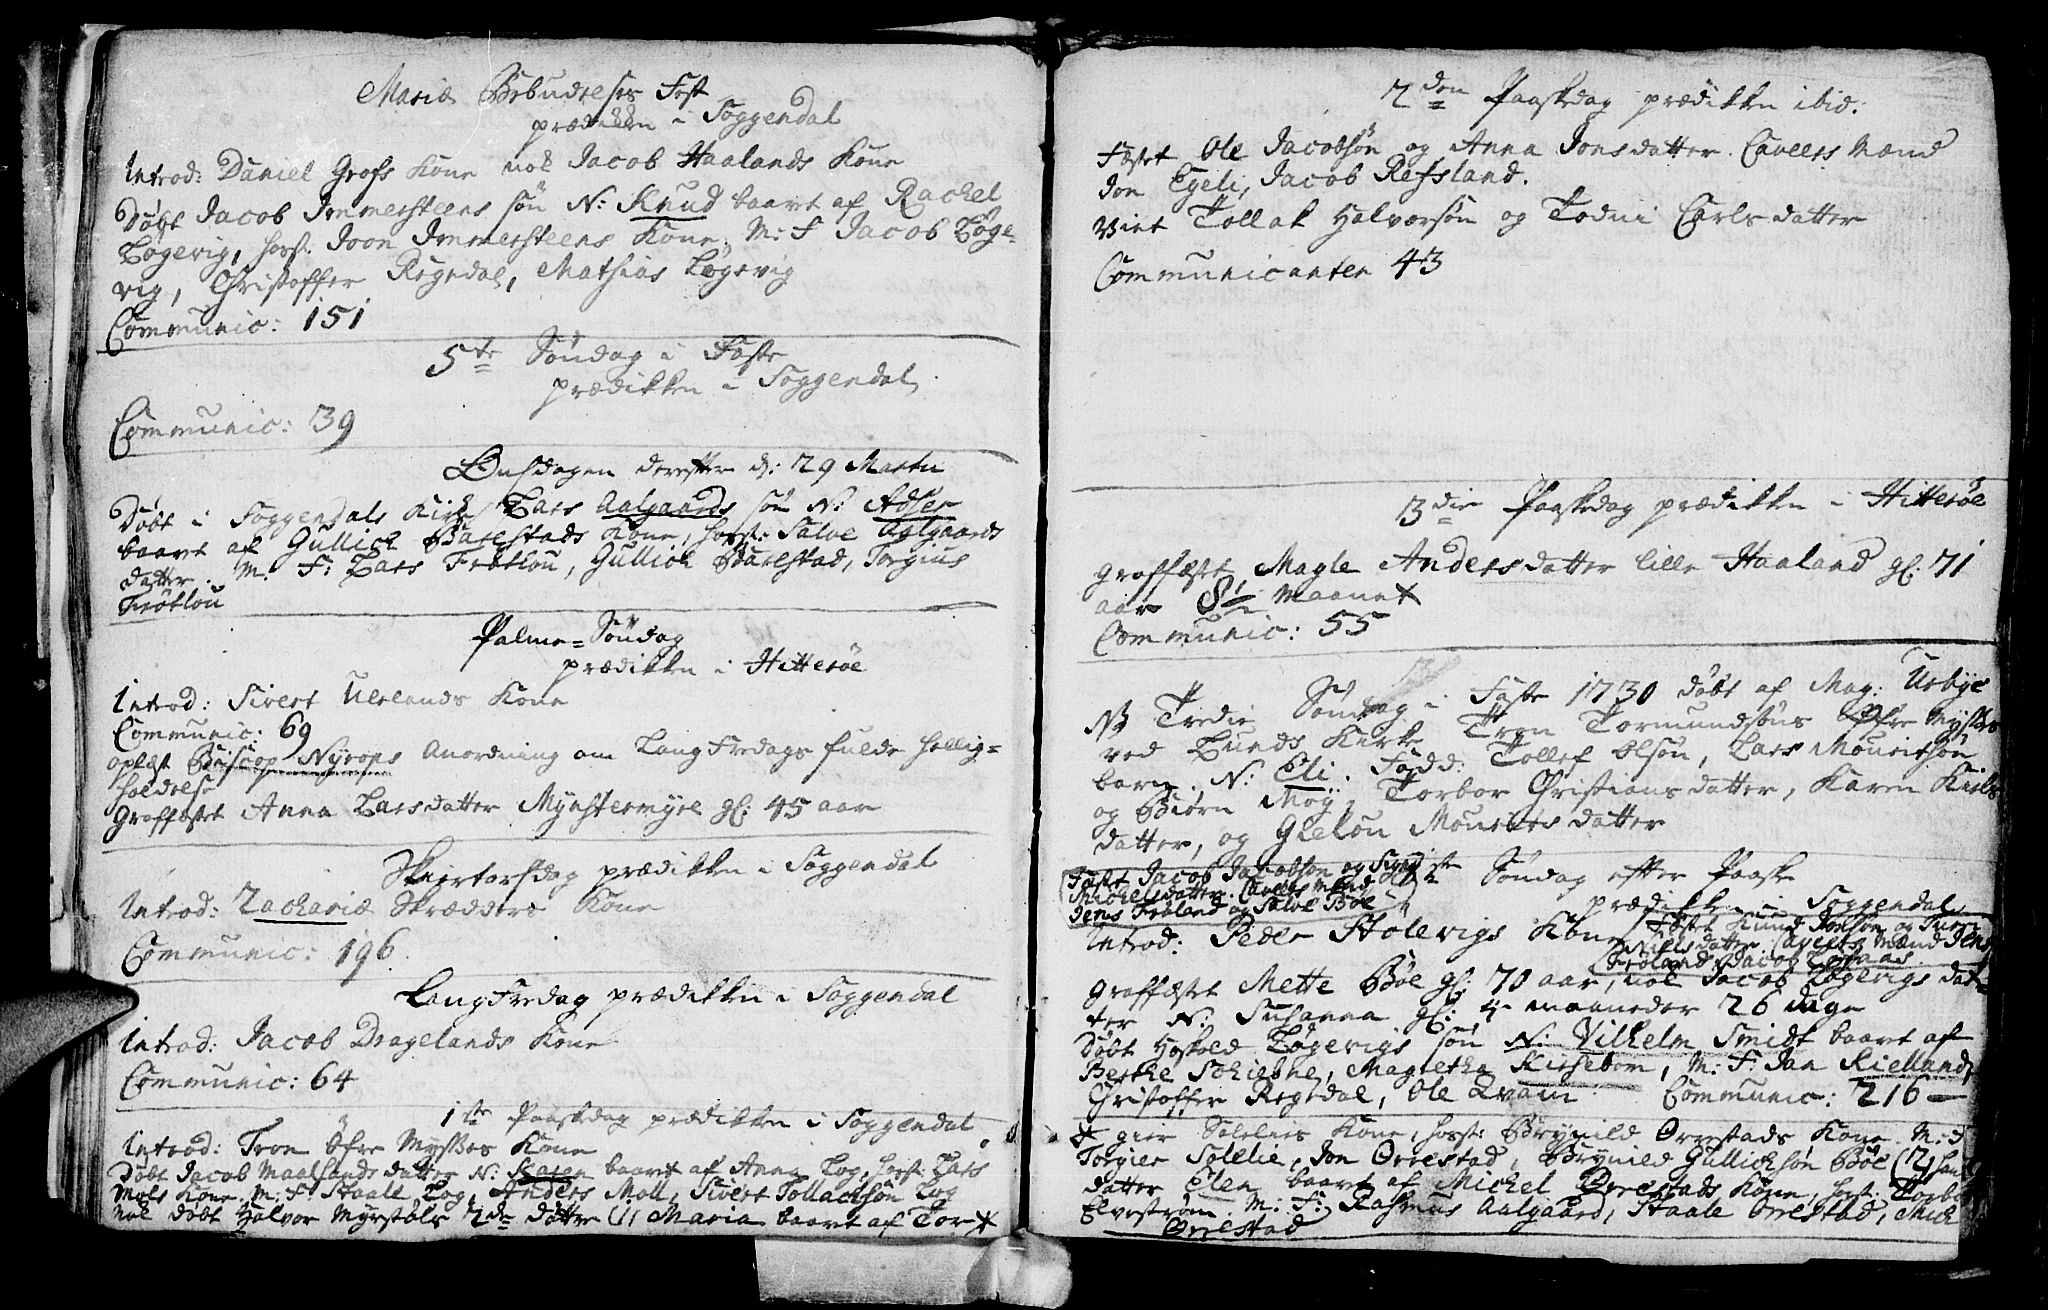 Mariæ Bebudelses Fest
prædikken i Soggendal
Introd: Daniel Grofs Kone nok Jacob Haalands Kone
Døbt Jacob Immersteens søn N: Knud baaret af Rachel
Løgevig, horst: Joon Immersteens Kone. M: F Jacob Løge-
vig, Christoffer Regedal, Mathias Løgevig
Communic: 151
5te Søndag i Faste
prædikken i Soggendal
Communic: 39
Onsdagen derefter d: 29 Martii
Døbt i Soggendals Kirke Lars Aalgaards søn N: Adser
baaret af Gullich Barstads Kone, horst: Salve Aalgaards
datter. M. F: Lars Frøtlou, Gullich Barstad, Torgius
Frøtlou
Palme-Søndag
prædikken i Hitterøe
Introd: Sivert Urelands Kone
Communic: 69
oplæst Biscop Nyrops Anordning om Lang Fredags fulde hellig-
holdelse
Graffæstet Anna Larsdatter Mynstermyre gl: 45 aar
Skiertorsdag prædikken i Soggendal
Introd: Zachariæ Skrædders Kone
Communic: 196
Lang Fredag prædikken i Soggendal
Introd: Jacob Dragelands Kone
Communic: 64
1ste Paaskedag prædikken i Soggendal
Introd: Tron Øfre Mysses Kone
Døbt Jacob Maalsands datter N: Karen baaret af Anna Log, horst: Lars
Mols Kone. M: F Staale Log, Anders Moll, Sivert Tollachsøn Log
nok døbt Halvor Myrstøls 2de døttre (1) Maria baaret af Tor ×
2den Paaskedag prædikken ibid:
Fæstet Ole Jacobsøn og Anna Jonsdatter. Caveers Mænd
Jon Egeli, Jacob Refsland.
Viet Tollak Halvorsøn og Todni Carlsdatter
Communicanter 43
3die Paaskedag prædikken i Hitterøe
graffæstet Magle Andersdatter lille Haaland gl. 71
aar 8te Maanet
Communic: 55
NB Tredie Søndag i Faste 1730 døbt af Mag: Urbye
ved Lunds Kirke Tron Tormundsøns Øfre Mysses
barn N: Eli. Fadd: Tollef Olsøn, Lars Mouritsøn
og Biørn Moy, Torbor Christiansdatter, Karen Kields
datter, og Gieløu Mouritsdatter
Fæstet Jacob Jacobsøn og Sigri
Michelsdatter. Caveers Mænd
Jens Frøland og Salve Bøe
1ste Søndag efter Paaske
prædikken i Soggendal
Introd: Peder Stolevigs Kone
Fæstet Knud Jonsøn og Turi
Nielsdatter. Caveers Mænd Jens
Frøland, Jacob Lopaas.
Graffæstet Mette Bøe gl: 70 aar, nok Jacob Løgevigs dat-
ter N: Susanna gl: 4 maaneder 26 dage
Døbt Hoskold Løgevigs søn N: Vilhelm Smidt baaret af
Berthe Schiebye, Magretha Kirsebom, M: F: Jan Kielland,
Christoffer Regedal, Ole Qvam. Communic: 216 —
× gier Solelies Kone, horst: Brynild Orrestads Kone. M: F
Torgier Solelie, Jon Orrestad, Brynild Gullichsøn Bøe (2)
datter Elen baaret af Michel Orrestads Kone, horst: Torbor
Elvestrøm. M: F: Rasmus Aalgaard, Staale Orrestad, Mich
Orrestad